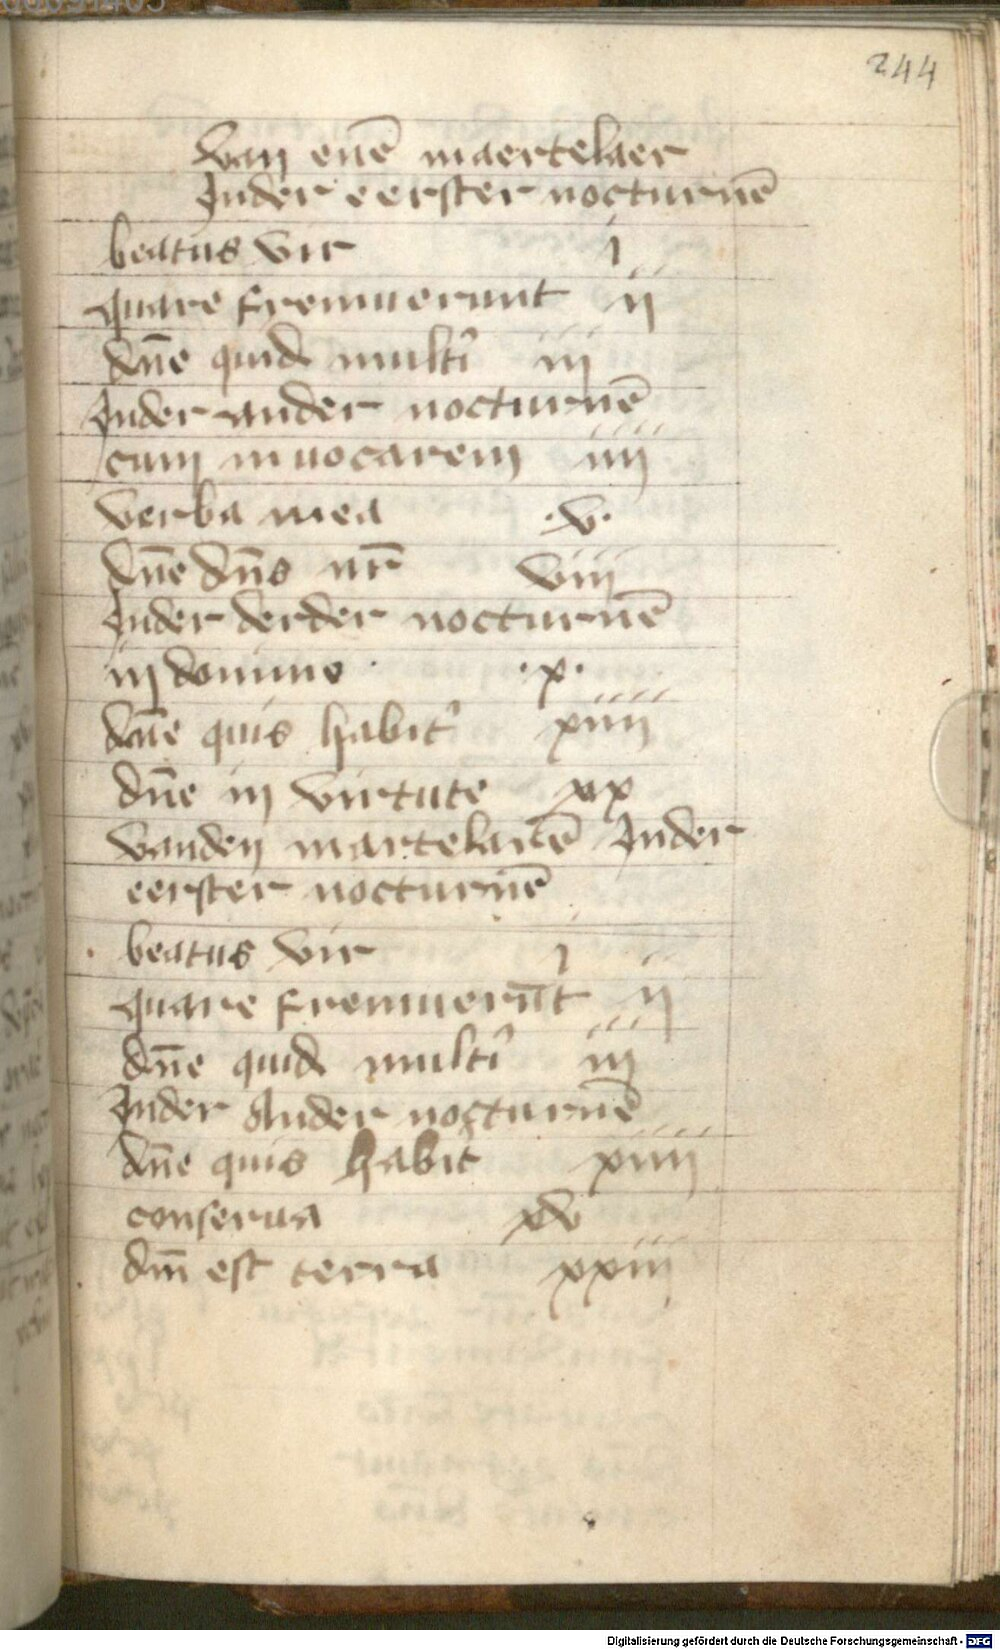 244
van enē maertelaer
Inder eerster nocturnē
beatus vir j
quare fremuerunt ij
dn̄e quid multi iij
Inder ander nocturnē
cum inuocarem iiij
verba mea .v.
dn̄e dn̄s nr̄ viij
Inder derder nocturnē
in domino .x.
dn̄e quis habit xiiij
dn̄e in virtute xx
vanden martelarē Inder
eerster nocturnē
beatus vir j
quare fremuerūt ij
dn̄e quid multi iij
Inder Ander nocturnē
dn̄e quis habit xiiij
conserua xv
dn̄i est terra xxiij
Digitalisierung gefördert durch die Deutsche Forschungsgemeinschaft - DFG